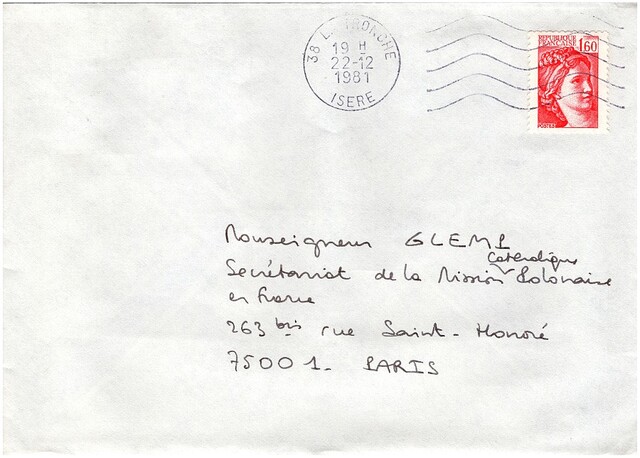 38 LA TRONCHE
19 H
22-12
1981
ISERE
REPUBLIQUE
FRANÇAISE
1,60
Monseigneur GLEMP
Catholique
Secrétariat de la Mission Polonaise
en France
263 bis rue Saint-Honoré
75001. PARIS